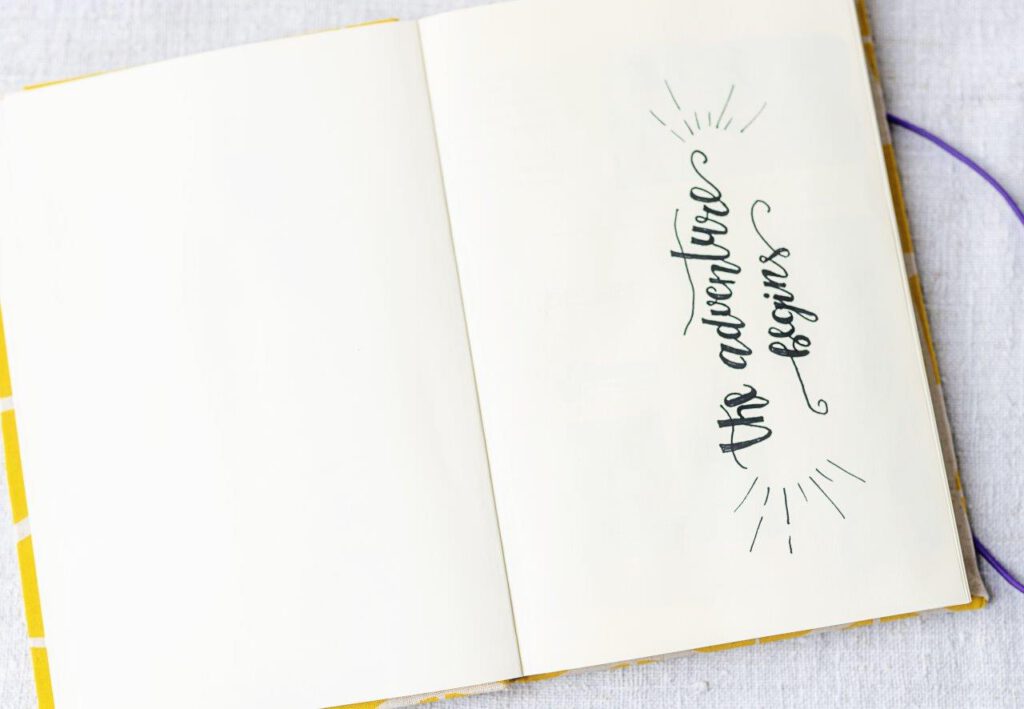 the adventure
begins